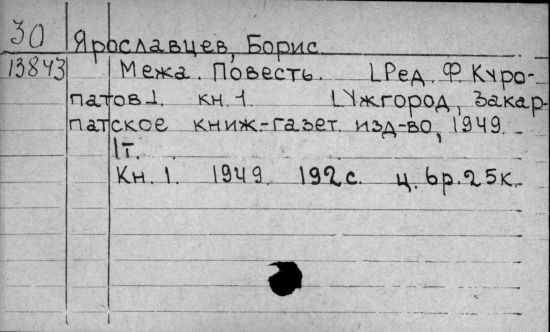 30 Ярославцев, Борис
13843 Межа. Повесть. [Ред. Ф. Куро-
патов]. кн. 1. [Ужгород, Закар-
патское книж.-газет. изд-во, 1949.
1т.
Кн. 1. 1949. 192 с. ц. 6р. 25к.